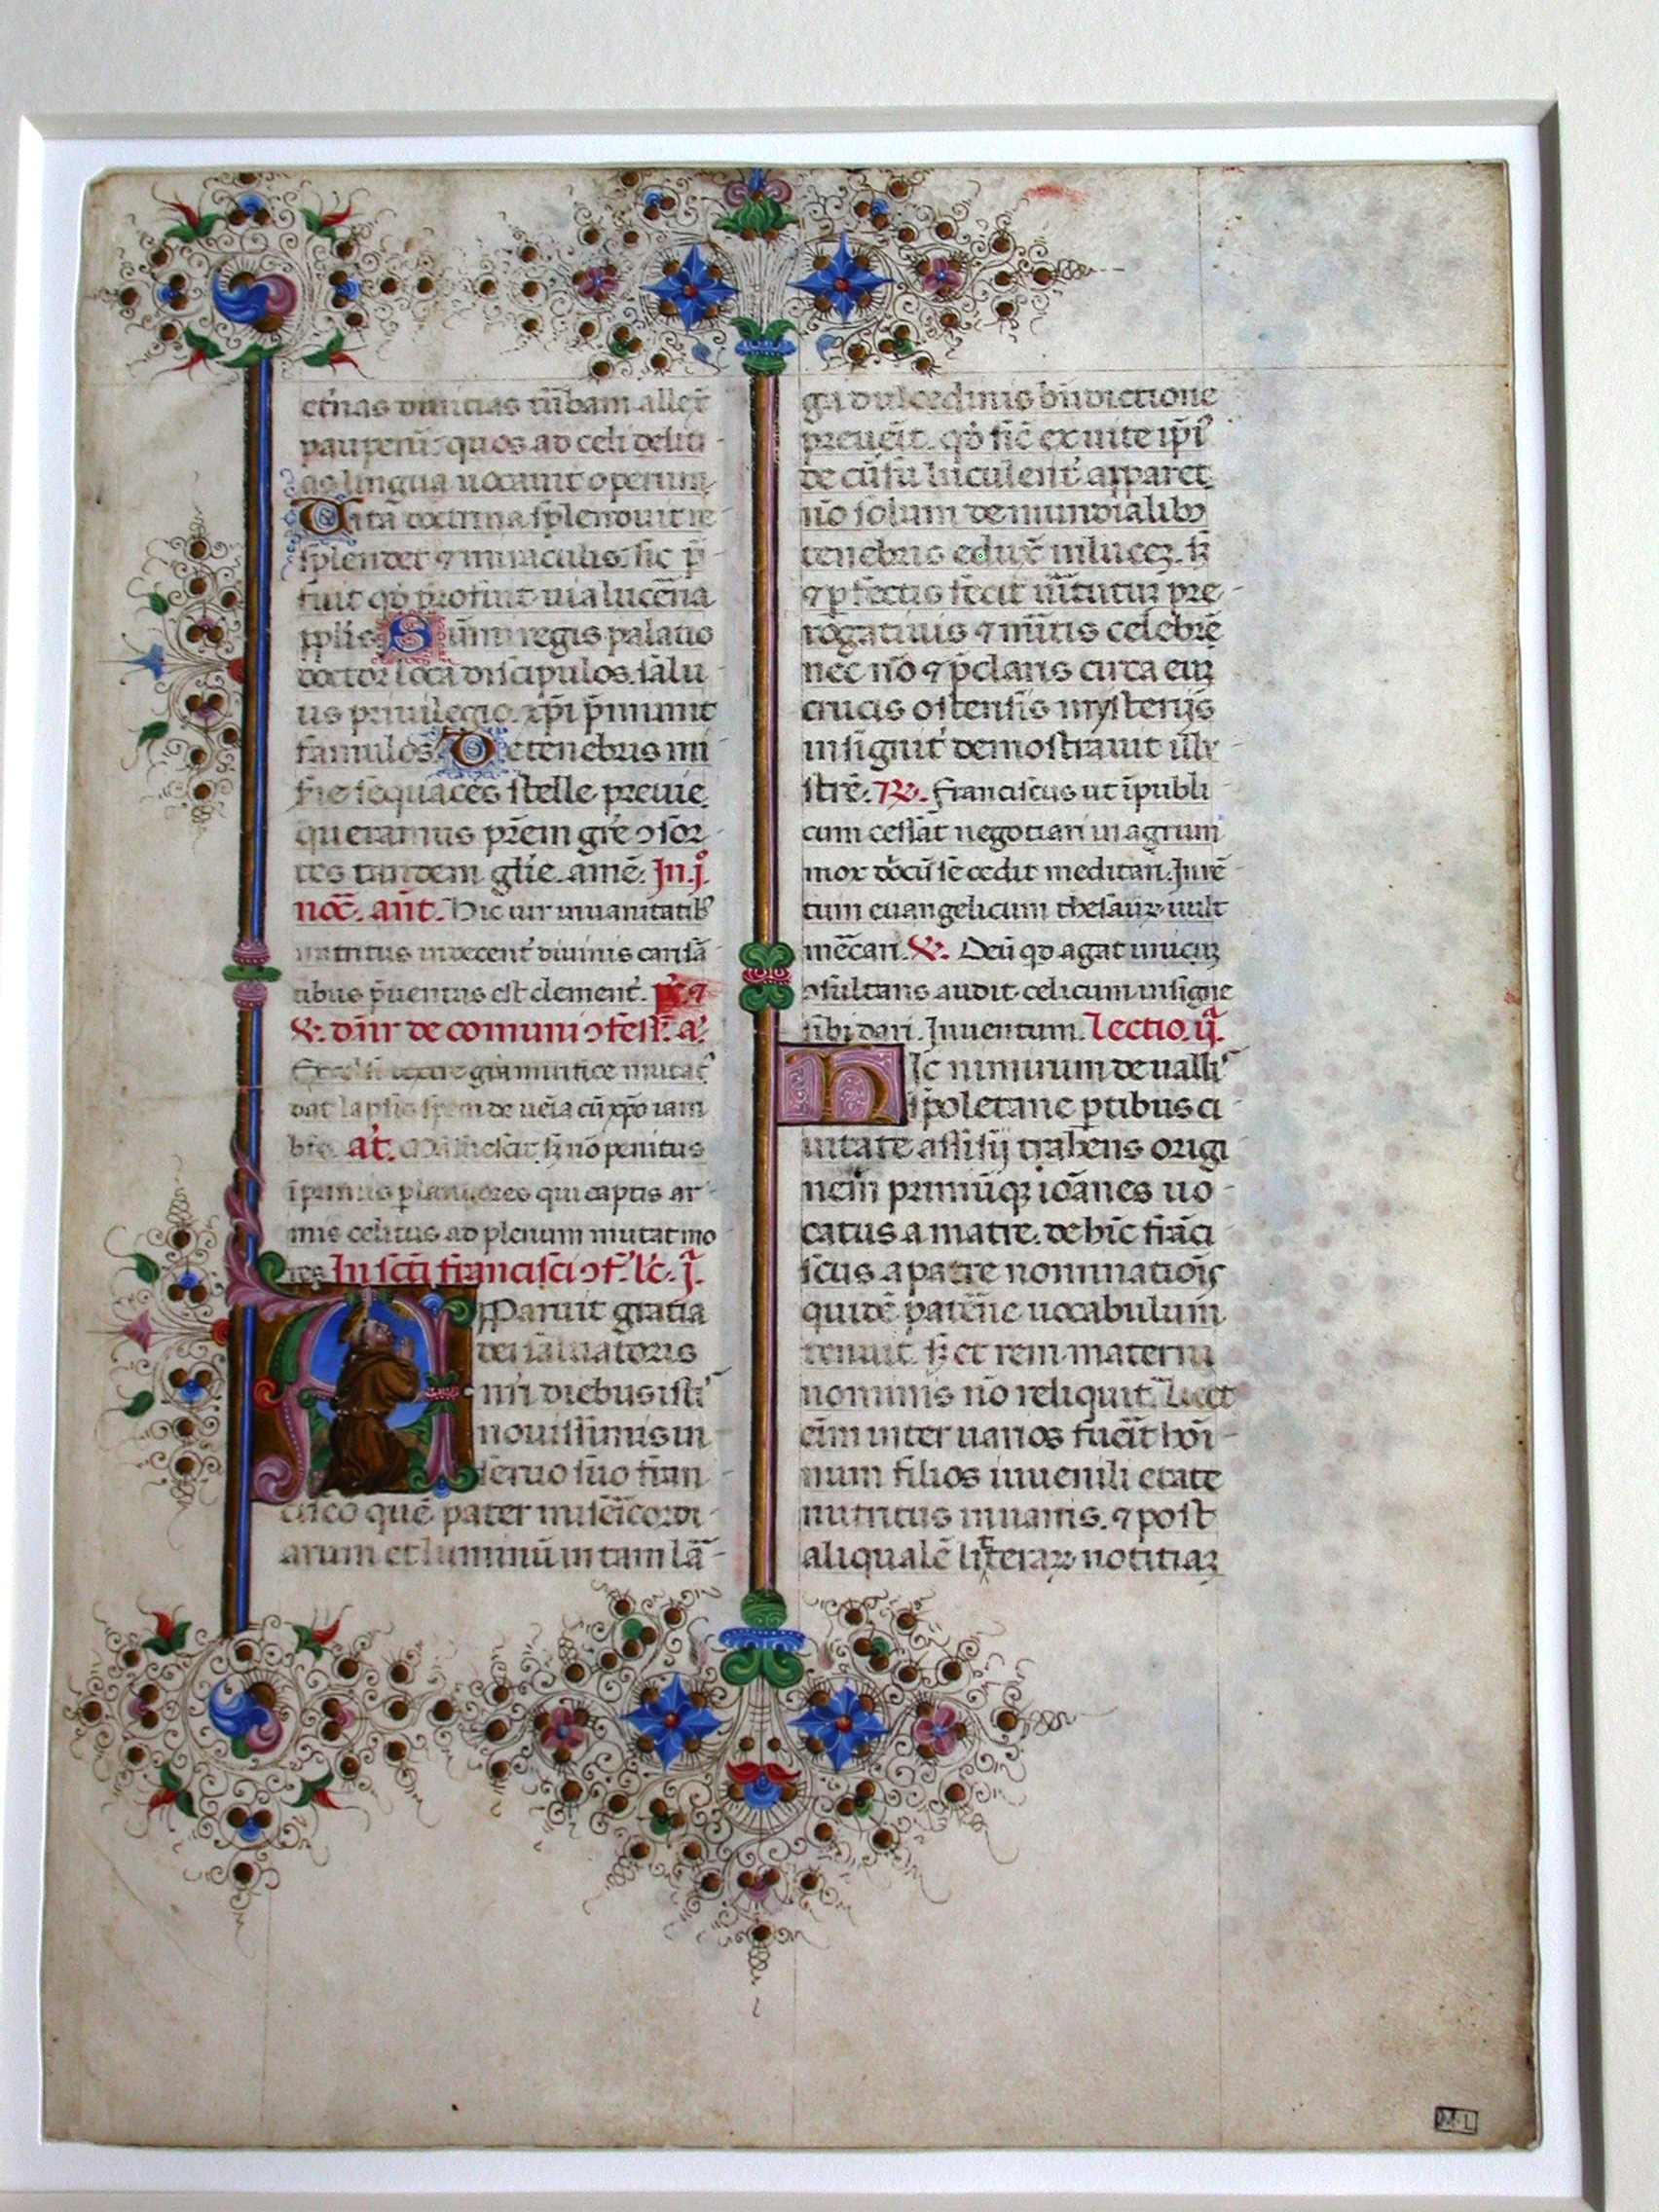 et̃nas diuitias tũbam allex̃
pauperũ: quos ad celi deliti
as lingua uocauit operum.
Vita doctrina splenduit re
splendet ⁊ miraculis. sic p̃
fuit qđ profuit uia lucẽna
pplis. Sũmi regis palatio
doctor loca discipulos. salu
us priuilegio. xp̃i p̃muniit
famulos. De tenebris mi
serie sequaces stelle preuie.
queramus pr̃em grẽ ↄsor
tes tandem glie. amẽ. In. j.º
noc̃. añt. Hic uir inuanitatib⁹
nutritus indecent̃ diuinis carisã
tibus p̃uentus est clement̃. p̃s. ⁊
℣. dñr de comuni ↄfess̃. a.
grãmirifice mutat⁹
dat lapsis spem de ueĩa cũ xp̃o iam
bĩo. añt. Mãsuescit. s̃ nõ penitus
ĩprimis p langores qui captis ar
mis celitus ad plenum mutat mo
res. In scti francisci ↄf. lc̃. j.ª
Apparuit gratia
dei saluatoris
nr̃i diebus isti⁹
nouissimis in
seruo suo fran
cisco quẽ pater misẽicordi
arum et luminũ in tam lã
ga dulcedinis bñdictione
preueñit. qđ sic̃ ex uite ip̃i⁹
de cũsu luculent̃ apparet.
nõ solum de mundialib⁹
tenebris eduxĩ in lucẽ. s̃
⁊ pfectis fecit ũtutũ pre
rogatiuis ⁊ mĩtis celebrẽ
nec nõ ⁊ p̃claris circa eũ
crucis ostensis mysterijs
insignit̃ demostrauit illu
strẽ. ℟. Franciscus ut ĩpubli
cum cessãt negotiari in agrum
mox dñicũ secedit meditari. Inuẽ
tum euangelicum thesauꝝ uult
mẽcari. ℣. Deũ qđ agat unicũ
ↄsultans audit celicum insigne
sibi dari. Inuentum. Lectio. ij.ª
Hic nimirum de ualli⁹
spoletane ptibus ci
uitate assisij trahens origi
nem primũqꝫ ioãnes uo
catus a matre. de hic̃ frãci
scus a patre nominatiõis
quidẽ patẽne uocabulum
tenuit. s̃ et rem materni
nominis nõ reliquit. Licet
eĩm inter uanos fuẽit hõi
num filios iuuenili etate
nutritus in uanis. ⁊ post
aliqualẽ litteraꝝ notitiaꝫ
M·L